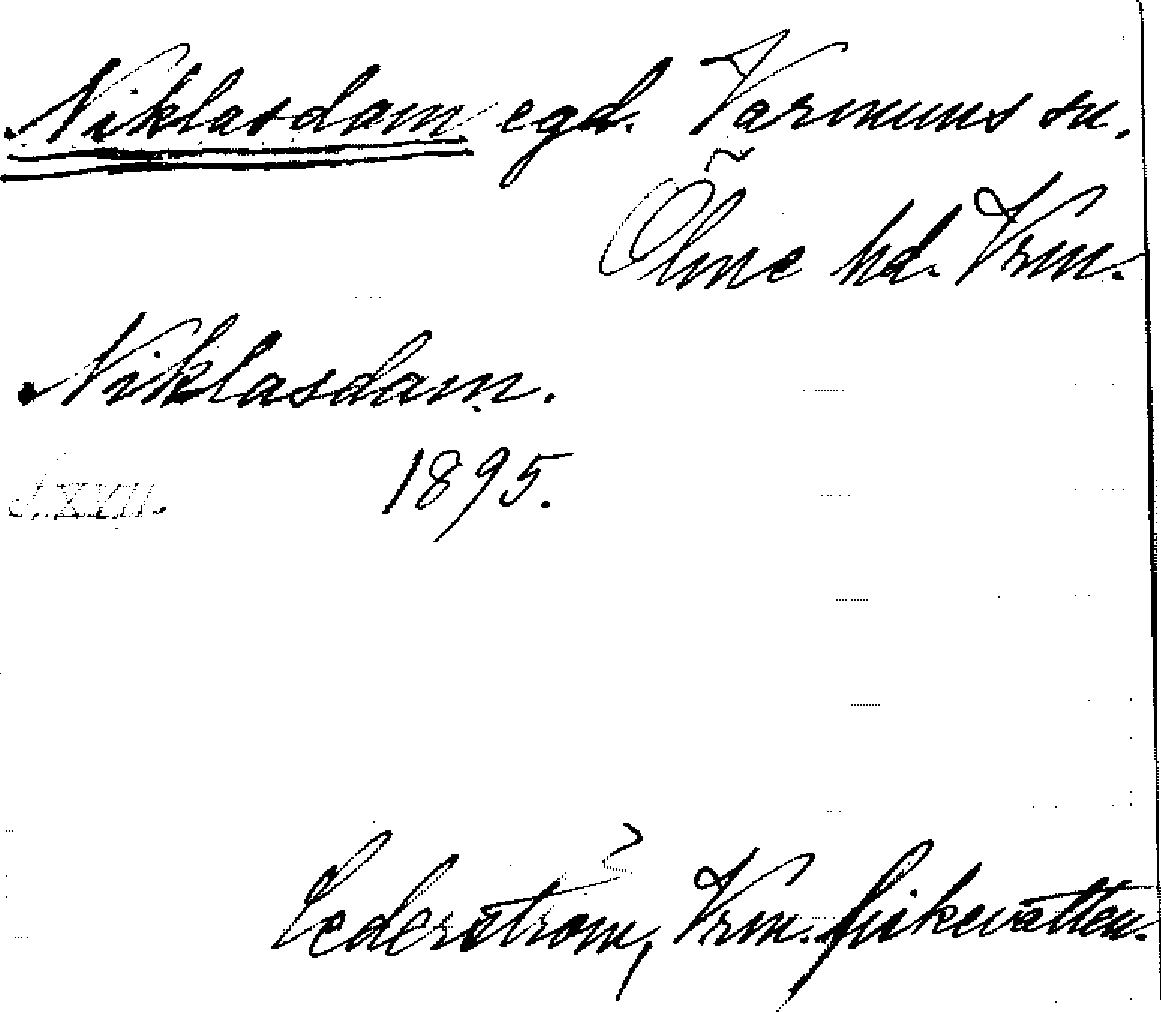 Niklasdam egd. Varnums sn.
Ölme hd. Vrm.
Niklasdam.
1895.
Cederström, Vrm. fiskevatten.